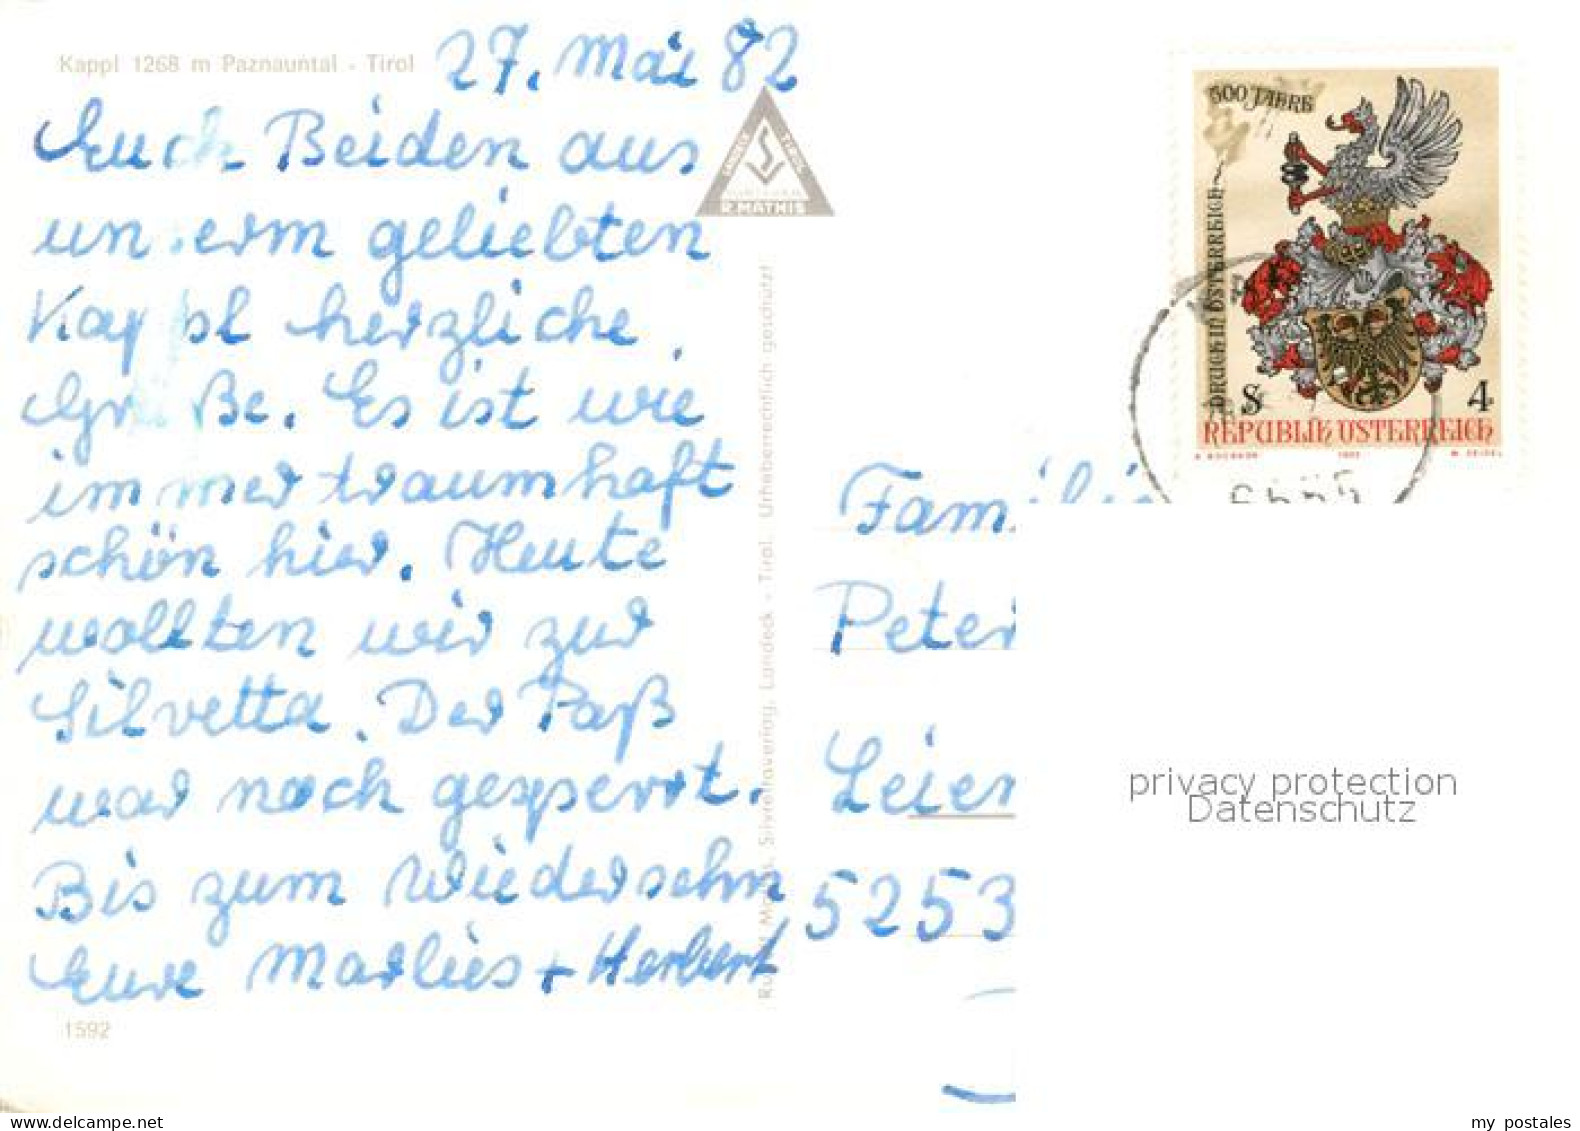 Kappl 1268 m Paznauntal - Tirol
27. Mai 82
Euch Beiden aus
unserm geliebten
Kappl herzliche
Grüße. Es ist wie
immer traumhaft
schön hier. Heute
wollten wir zur
Silvretta. Der Paß
war noch gesperrt.
Bis zum Wiedersehn
Eure Marlies + Herbert
1592
R. MATHIS
Rudolf Mathis, Silvrettaverlag, Landeck - Tirol. Urheberrechtlich geschützt!
500 JAHRE
DRUCK IN ÖSTERREICH
S 4
REPUBLIK ÖSTERREICH
1982
Familie
Peter
Leier
5253
privacy protection
Datenschutz
my postales